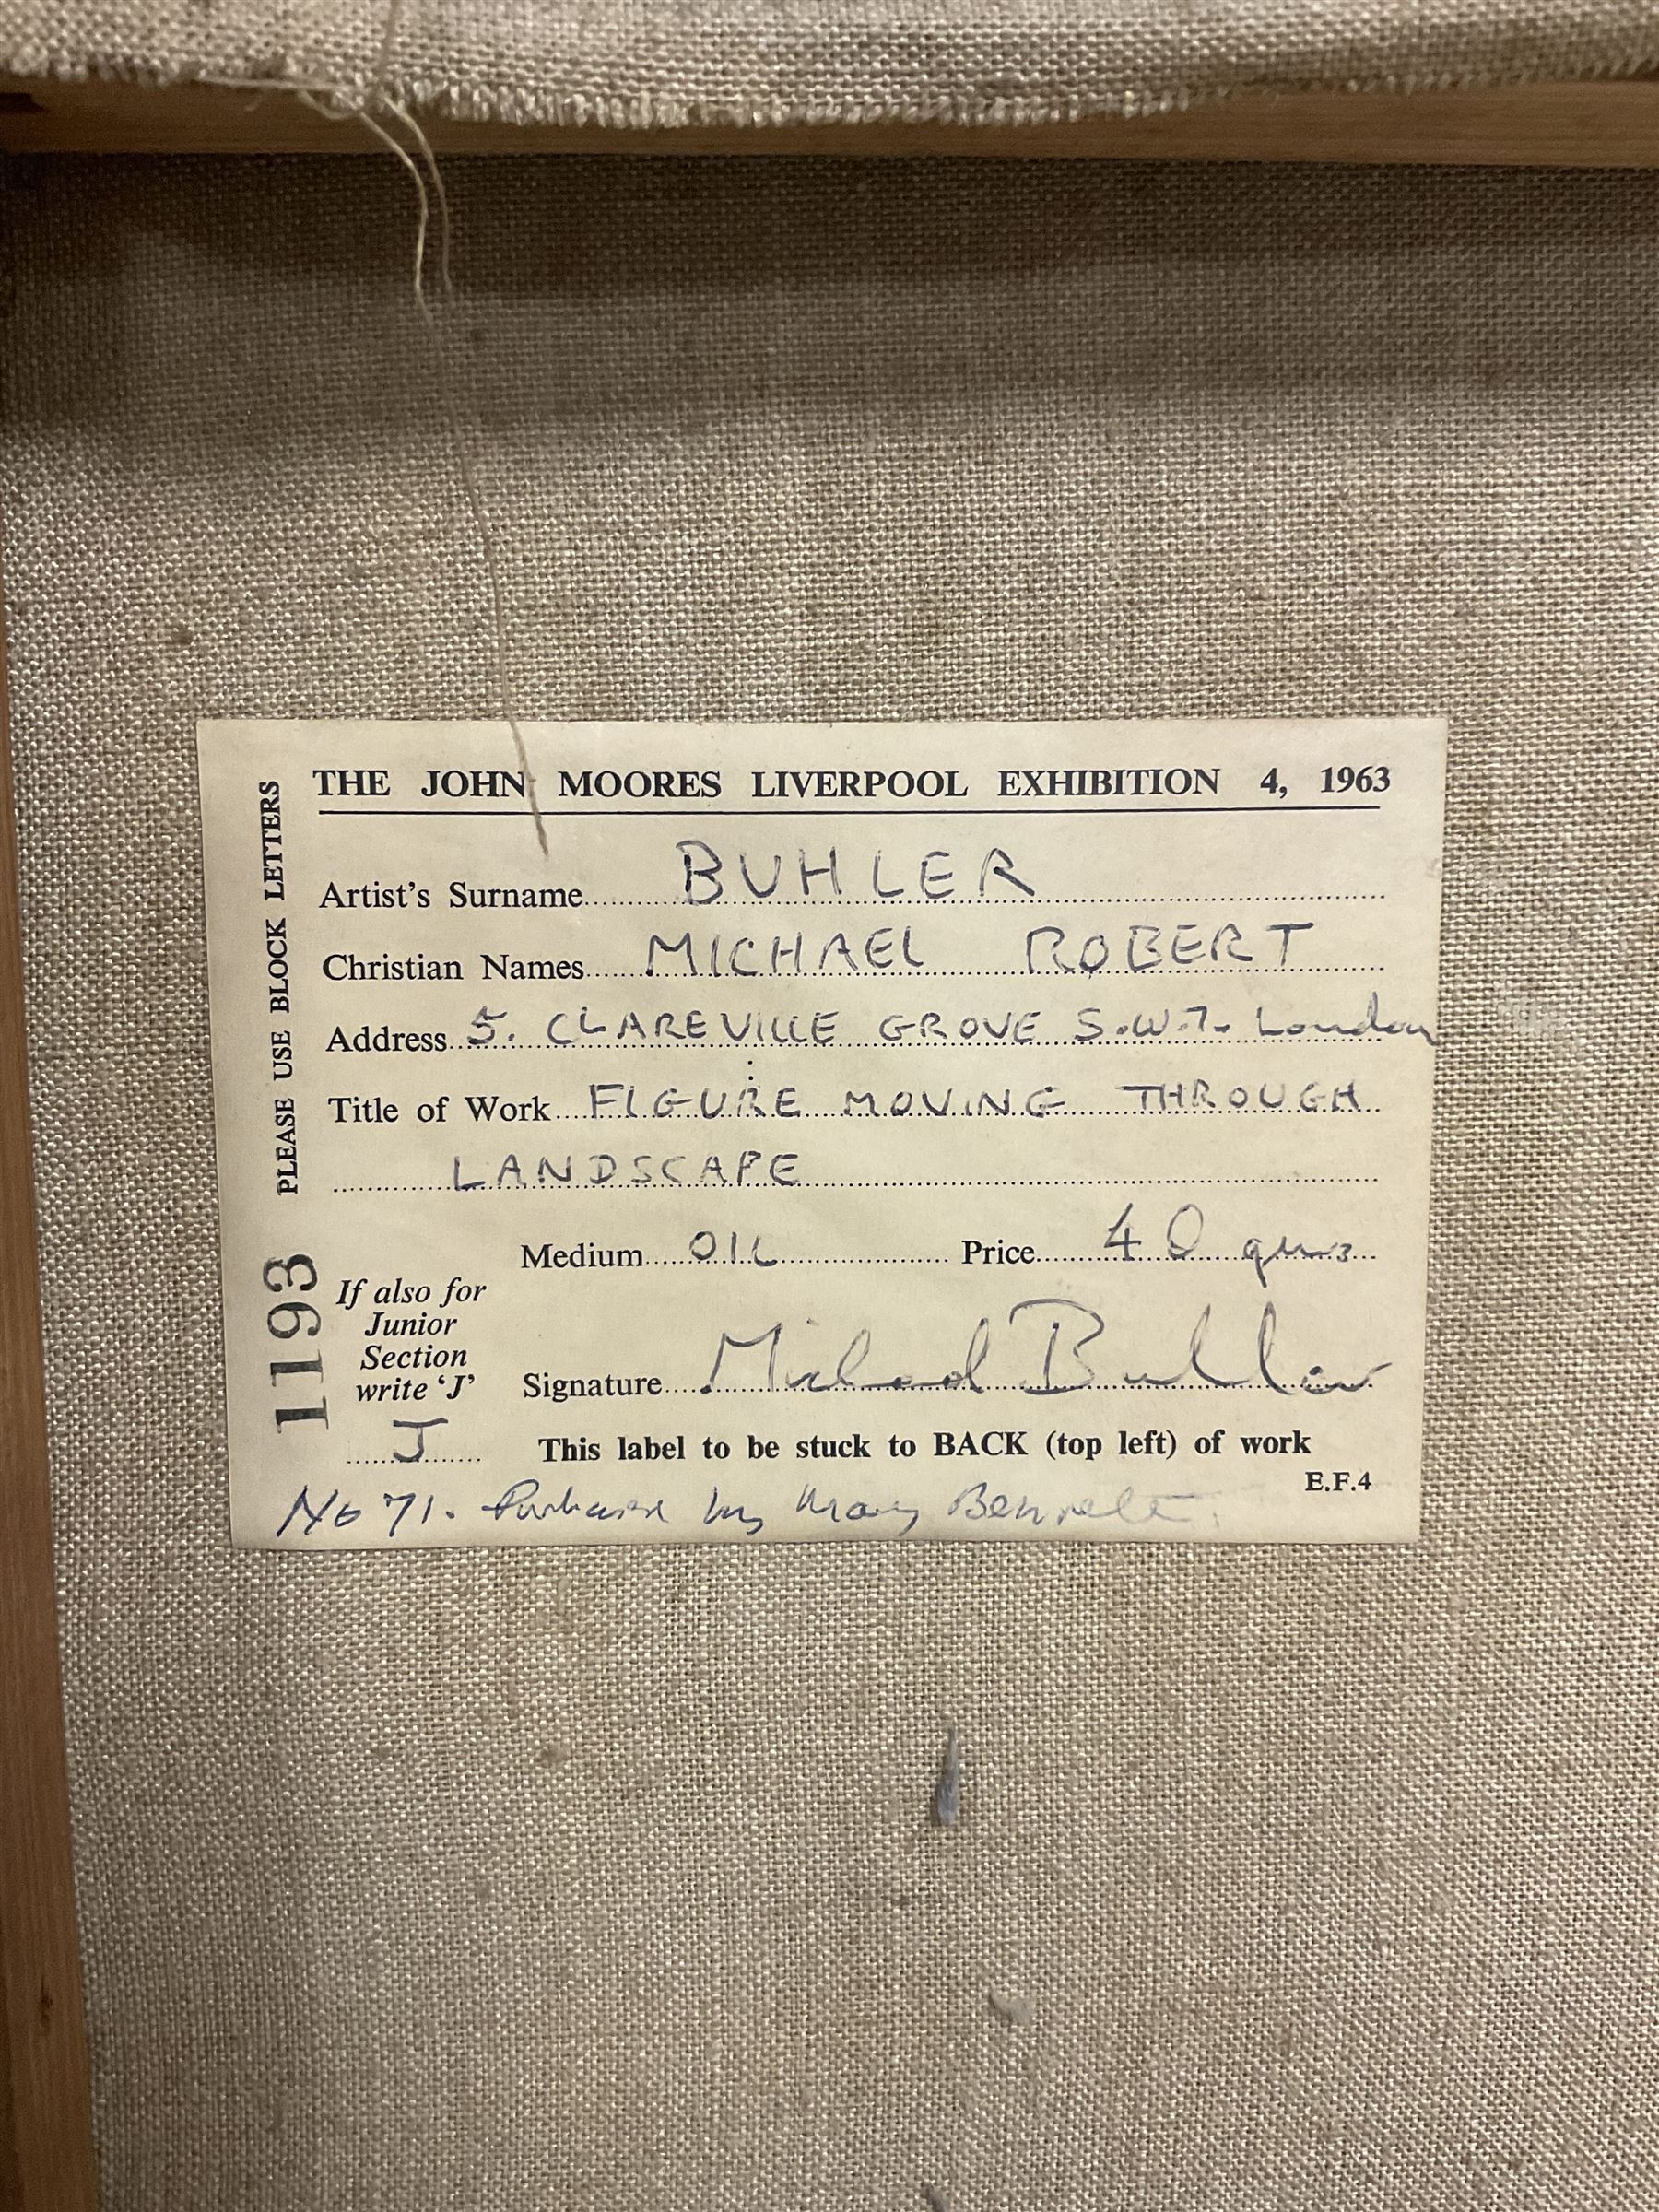 THE JOHN MOORES LIVERPOOL EXHIBITION 4, 1963
PLEASE USE BLOCK LETTERS
Artist's Surname BUHLER
Christian Names MICHAEL ROBERT
Address 5. CLAREVILLE GROVE S.W.7. London
Title of Work FIGURE MOVING THROUGH
LANDSCAPE
Medium OIL Price 40 gns
1193
If also for
Junior
Section
write 'J'
J
Signature Michael Buhler
This label to be stuck to BACK (top left) of work
E.F.4
No 71. Purchased by Mary Bennett.